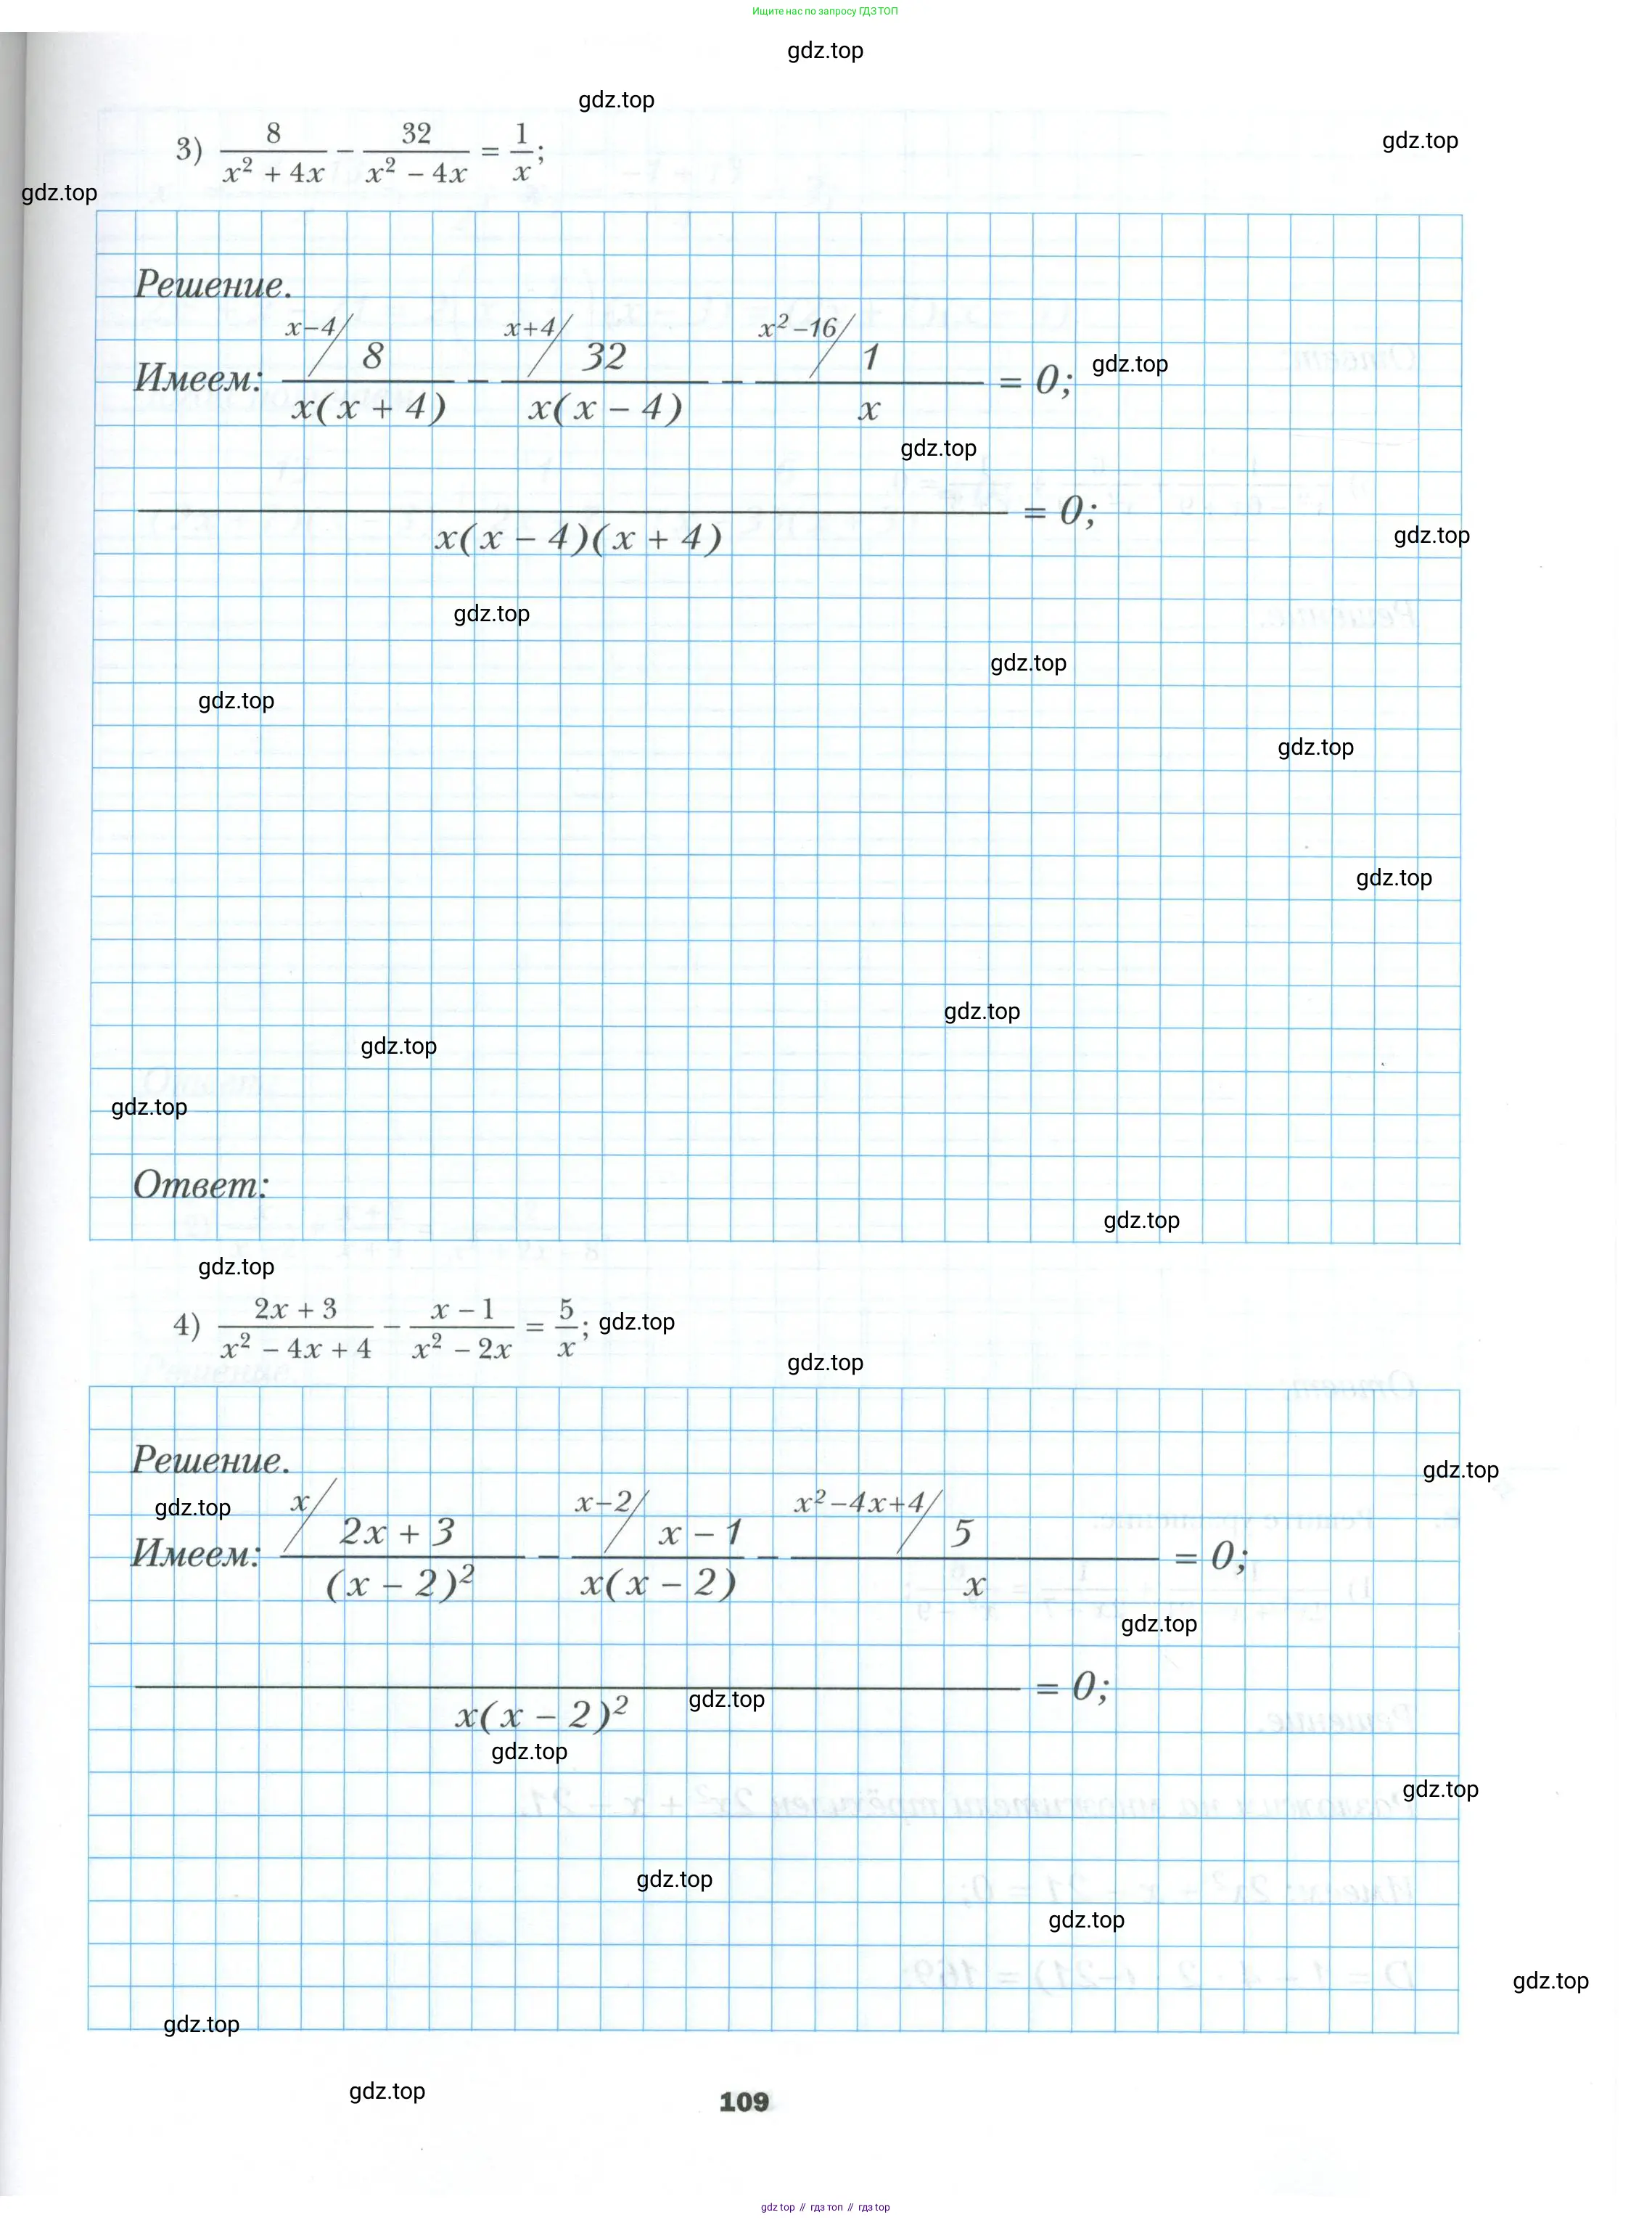 Ищите нас по запросу ГДЗ ТОП
gdz.top
gdz.top
gdz.top
3) 8/(x² + 4x) − 32/(x² − 4x) = 1/x;
gdz.top
Решение.
Имеем: x−4/ 8/(x(x + 4)) − x+4/ 32/(x(x − 4)) − x²−16/ 1/x = 0;
gdz.top
gdz.top
____/(x(x − 4)(x + 4)) = 0;
gdz.top
gdz.top
gdz.top
gdz.top
gdz.top
gdz.top
gdz.top
gdz.top
gdz.top
Ответ:
gdz.top
gdz.top
4) (2x + 3)/(x² − 4x + 4) − (x − 1)/(x² − 2x) = 5/x;
gdz.top
gdz.top
Решение.
gdz.top
gdz.top
Имеем: x/ (2x + 3)/((x − 2)²) − x−2/ (x − 1)/(x(x − 2)) − x²−4x+4/ 5/x = 0;
gdz.top
____/(x(x − 2)²) = 0;
gdz.top
gdz.top
gdz.top
gdz.top
gdz.top
gdz.top
gdz.top
gdz.top
109
gdz top // гдз топ // гдз top